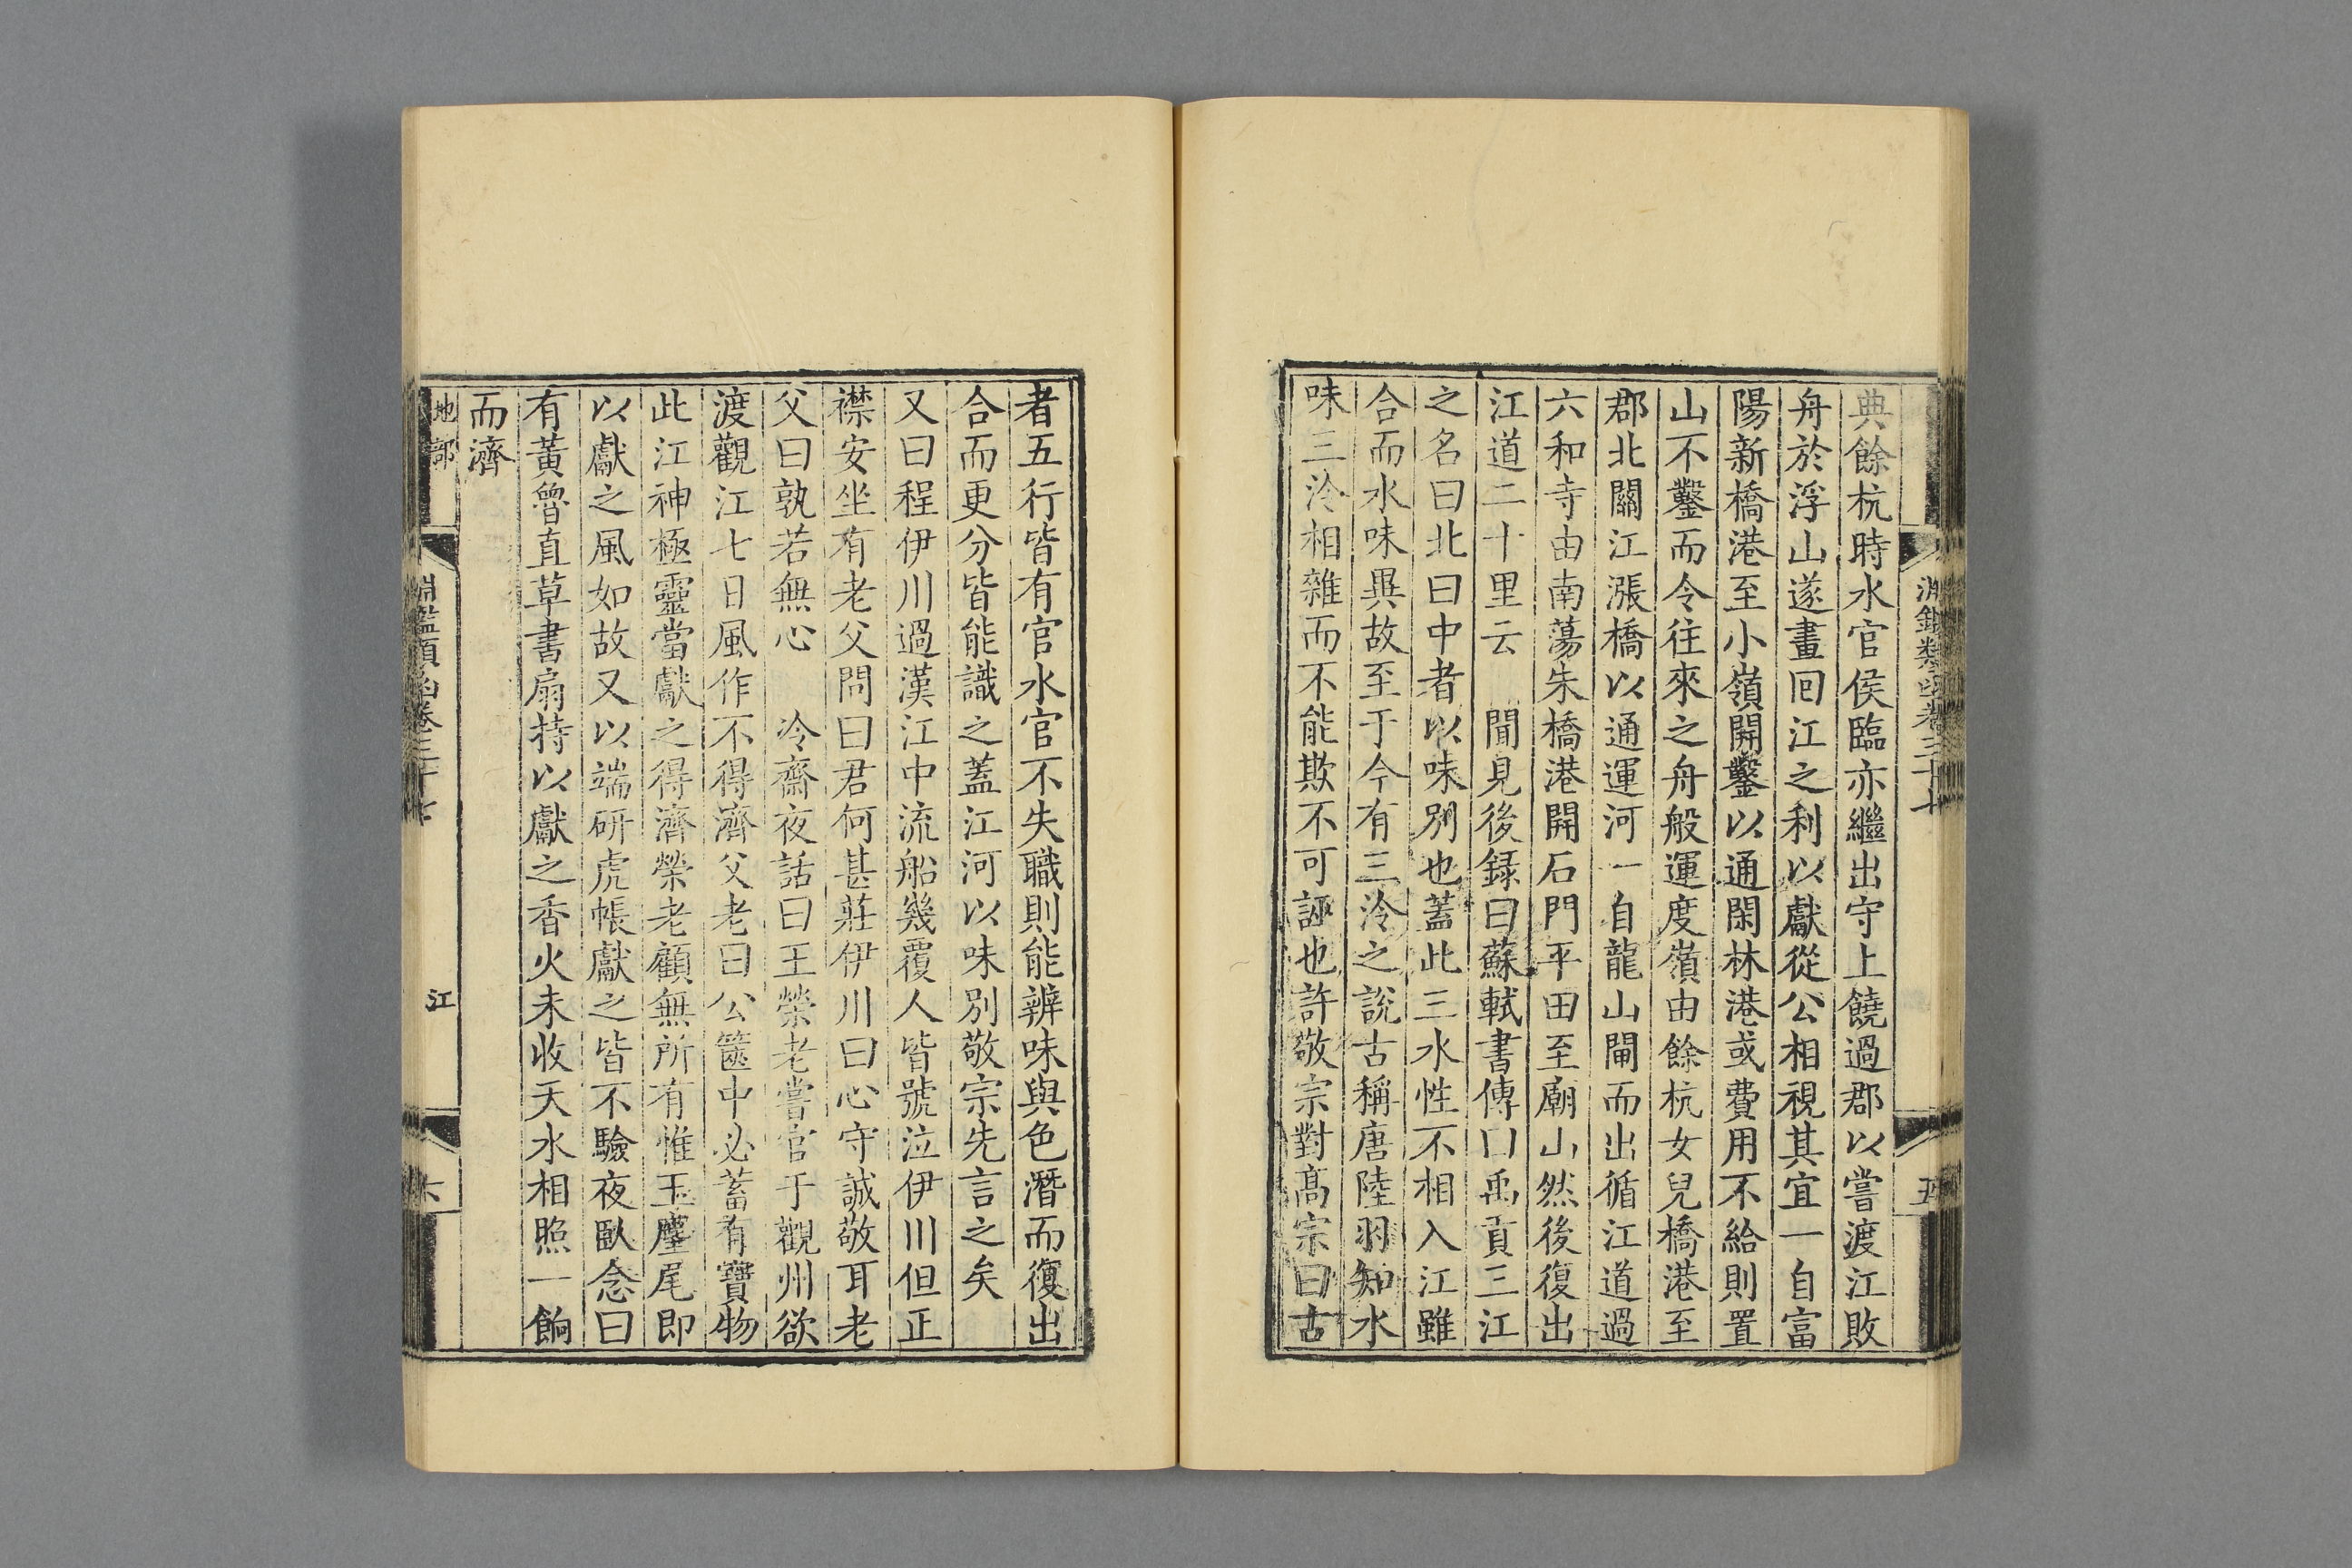 淵鑑類函卷三十七
五
典餘杭時水官侯臨亦繼出守上饒過郡以嘗渡江敗
舟於浮山遂畫回江之利以獻從公相視其宜一自富
陽新橋港至小嶺開鑿以通閑林港或費用不給則置
山不鑿而令往來之舟般運度嶺由餘杭女兒橋港至
郡北關江漲橋以通運河一自龍山閘而出循江道過
六和寺由南蕩朱橋港開石門平田至廟山然後復出
江道二十里云　聞見後録曰蘇軾書傳曰禹貢三江
之名曰北曰中者以味別也蓋此三水性不相入江雖
合而水味異故至于今有三泠之説古稱唐陸羽知水
味三泠相雜而不能欺不可誣也許敬宗對髙宗曰古
者五行皆有官水官不失職則能辨味與色潛而復出
合而更分皆能識之蓋江河以味別敬宗先言之矣
又曰程伊川過漢江中流船幾覆人皆號泣伊川但正
襟安坐有老父問曰君何甚莊伊川曰心守誠敬耳老
父曰孰若無心　冷齋夜話曰王榮老嘗官于觀州欲
渡觀江七日風作不得濟父老曰公篋中必蓄有寶物
此江神極靈當獻之得濟榮老顧無所有惟玉麈尾即
以獻之風如故又以端硏虎帳獻之皆不驗夜臥念曰
有黃魯直草書扇持以獻之香火未收天水相照一餉
而濟
地部
淵鑑類函卷三十七
江
六